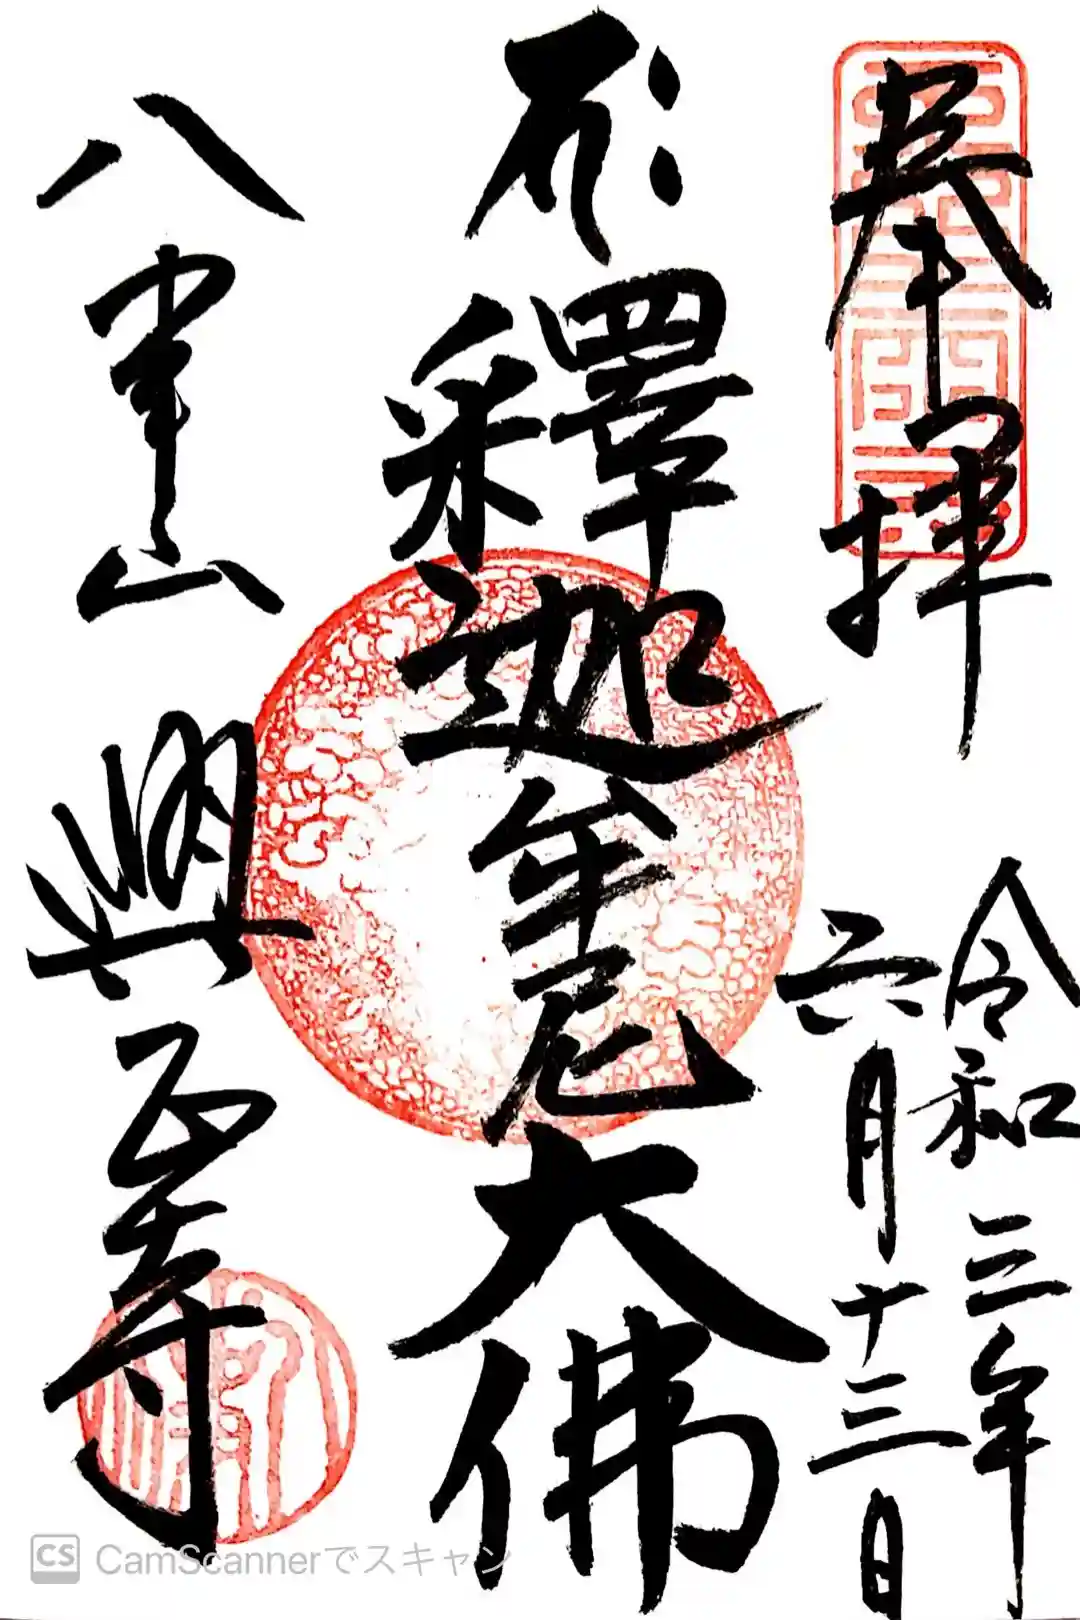 奉拝
令和三年
六月十三日
釋迦牟尼大佛
八事山 興正寺
CS CamScannerでスキャン